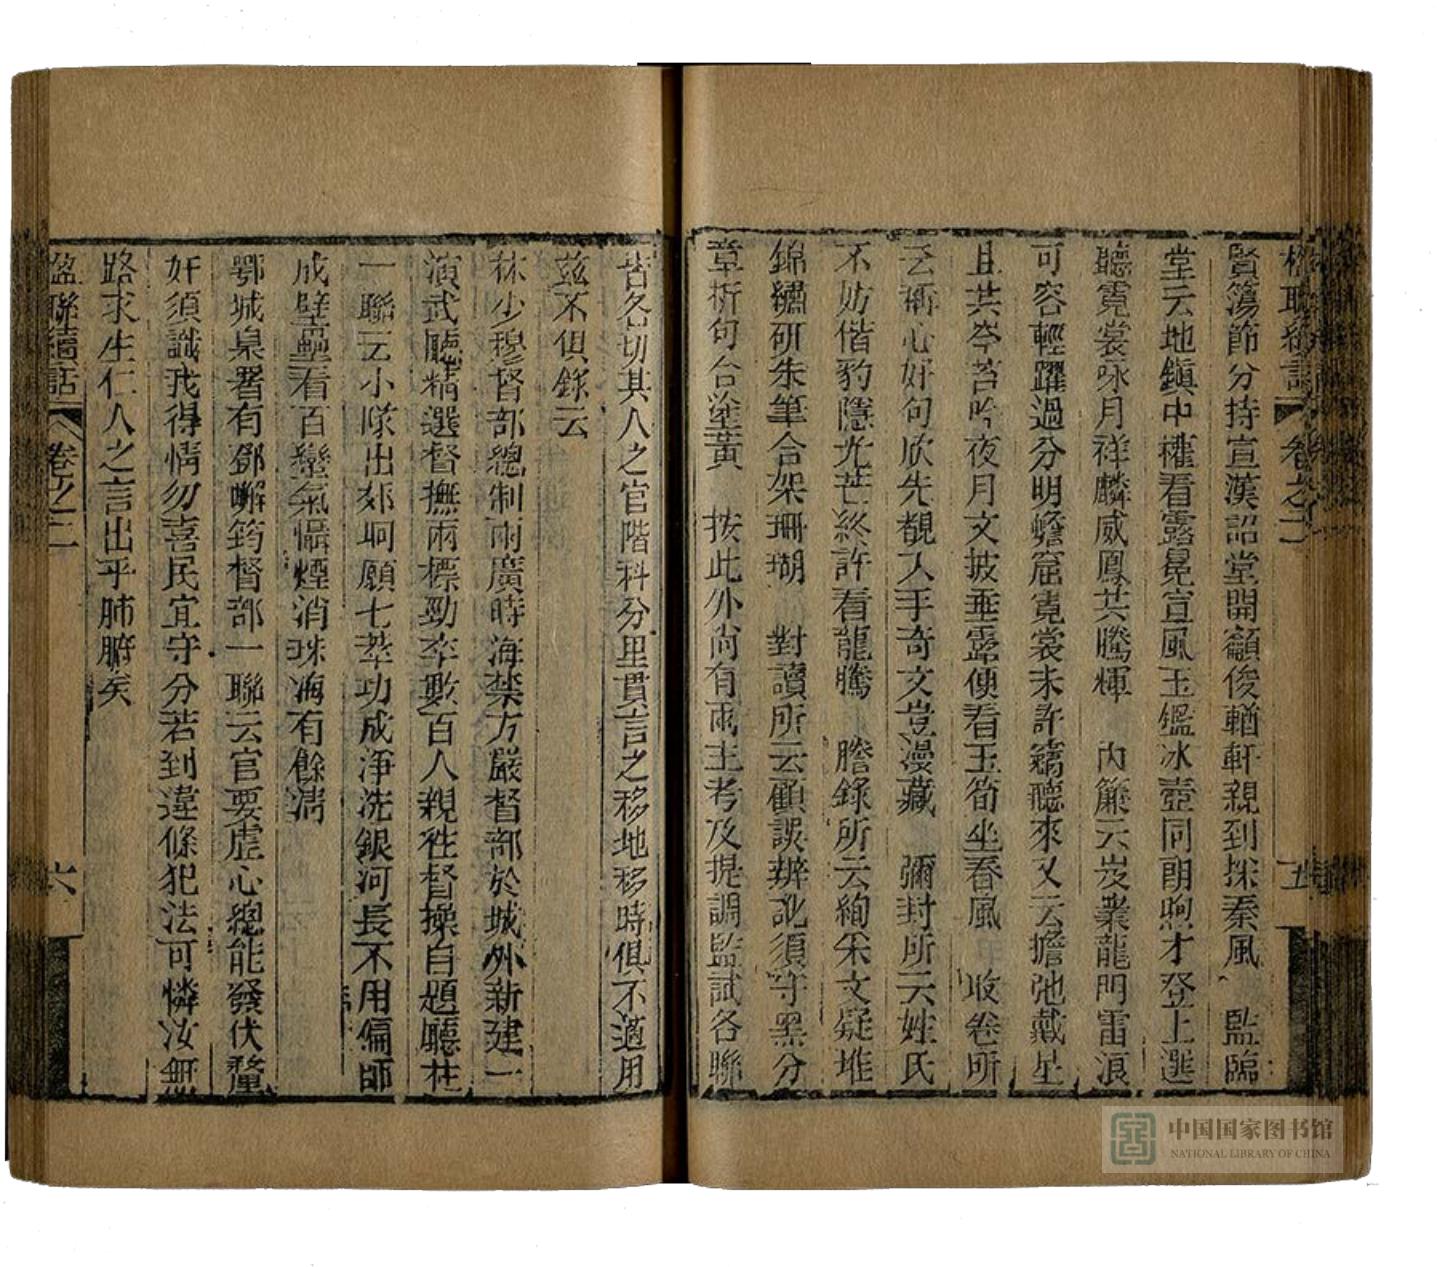 楹聯續話 卷之二 五
賢蕩節分持宣漢詔堂開籲俊輶軒親到採秦風 監臨
堂云地鎮中權看露冕宣風玉鑑冰壺同朗喣才登上選
聽霓裳咏月祥麟威鳳共騰輝 內簾云岌業龍門雷浪
可容輕躍過分明蟾窟霓裳未許竊聽來又云擔弛戴星
且共岑苔吟夜月文披垂露便看玉筍坐春風 收卷所
云衡心好句欣先覩入手奇文豈漫藏 彌封所云姓氏
不妨偕豹隱光芒終許看龍騰 謄錄所云絢采文疑堆
錦繡研朱筆合架珊瑚 對讀所云顧誤辨訛須守黑分
章析句合塗黃 按此外尚有兩主考及提調監試各聯
皆各切其人之官階科分里貫言之移地移時俱不適用
茲不俱錄云
林少穆督部總制兩廣時海禁方嚴督部於城外新建一
演武廳精選督撫兩標勁卒數百人親往督操自題廳柱
一聯云小隊出郊坰願七萃功成淨洗銀河長不用偏師
成壁壘看百蠻氣懾煙消珠海有餘清
鄂城臬署有鄧嶰筠督部一聯云官要虛心總能發伏釐
奸須識我得情勿喜民宜守分若到違條犯法可憐汝無
路求生仁人之言出乎肺腑矣
楹聯續話 卷之二 六
中国国家图书馆
NATIONAL LIBRARY OF CHINA